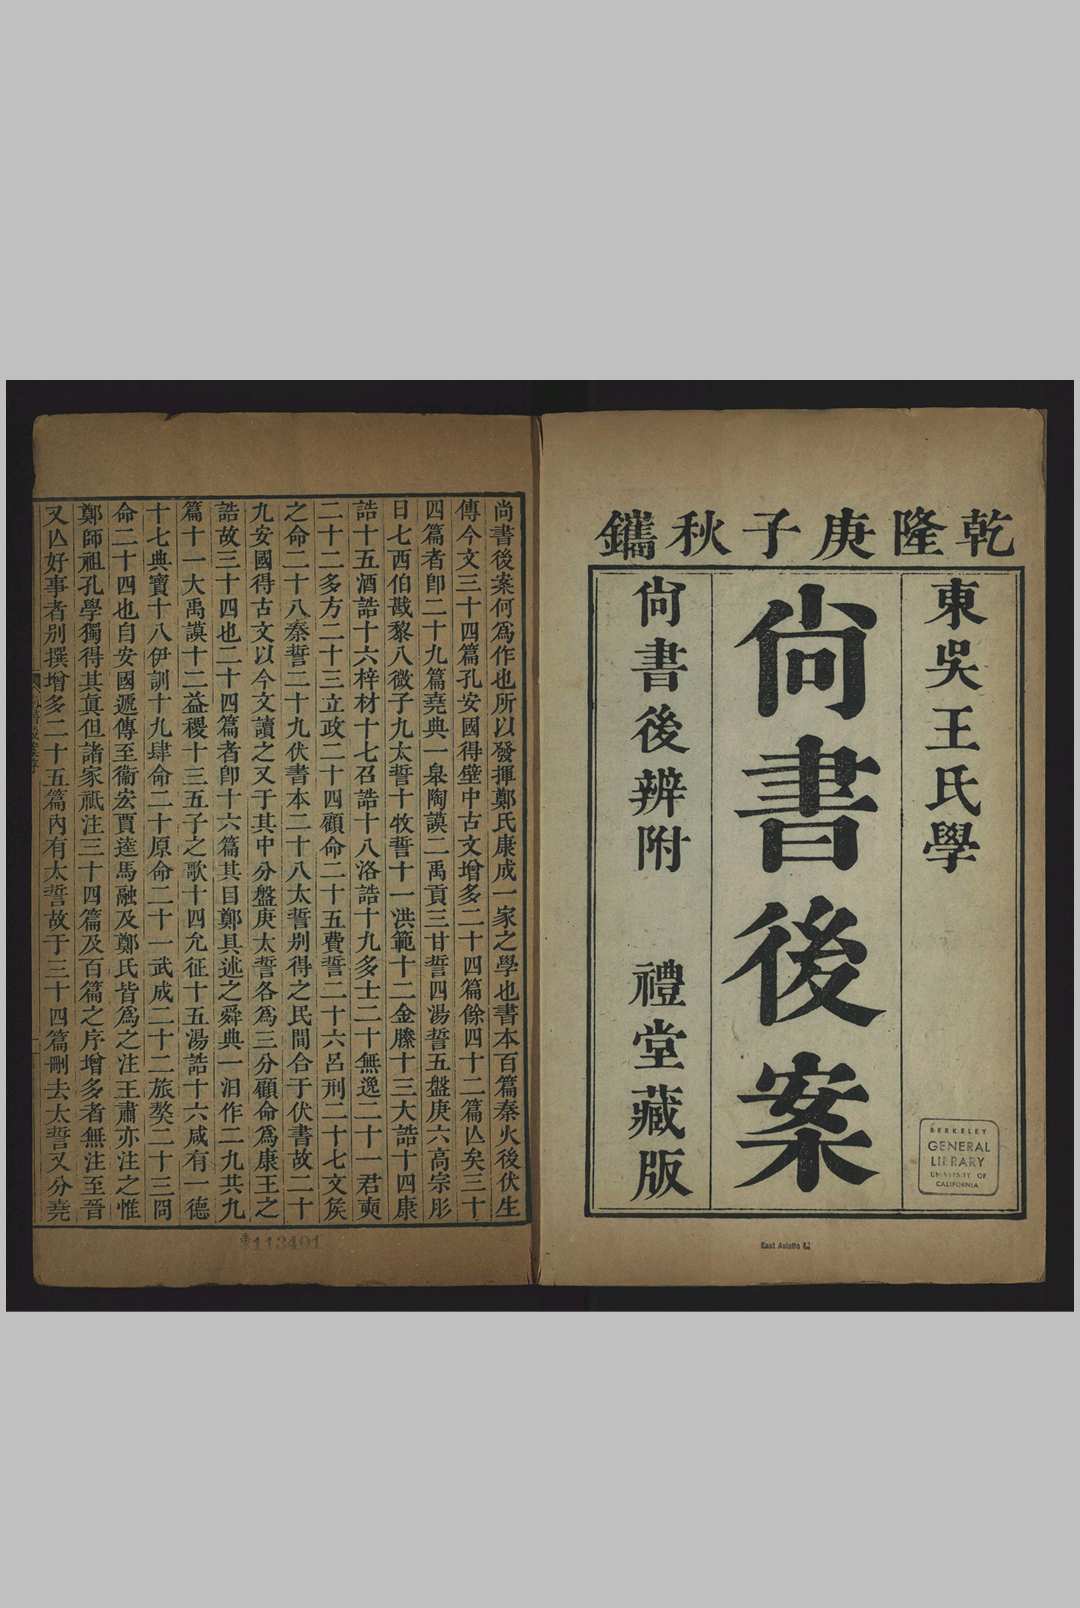 乾隆庚子秋鐫
東吳王氏學
尙書後案
尙書後辨附　禮堂藏版
BERKELEY
GENERAL
LIBRARY
UNIVERSITY OF
CALIFORNIA
East Asiatic
尚書後案何爲作也所以發揮鄭氏康成一家之學也書本百篇秦火後伏生
傳今文三十四篇孔安國得壁中古文增多二十四篇餘四十二篇亾矣三十
四篇者卽二十九篇堯典一皋陶謨二禹貢三甘誓四湯誓五盤庚六高宗肜
日七西伯戡黎八微子九太誓十牧誓十一洪範十二金縢十三大誥十四康
誥十五酒誥十六梓材十七召誥十八洛誥十九多士二十無逸二十一君奭
二十二多方二十三立政二十四顧命二十五費誓二十六呂刑二十七文侯
之命二十八秦誓二十九伏書本二十八太誓别得之民間合于伏書故二十
九安國得古文以今文讀之又于其中分盤庚太誓各爲三分顧命爲康王之
誥故三十四也二十四篇者卽十六篇其目鄭具述之舜典一汨作二九共九
篇十一大禹謨十二益稷十三五子之歌十四允征十五湯誥十六咸有一德
十七典寶十八伊訓十九肆命二十原命二十一武成二十二旅獒二十三冏
命二十四也自安國遞傳至衞宏賈逵馬融及鄭氏皆爲之注王肅亦注之惟
鄭師祖孔學獨得其眞但諸家祇注三十四篇及百篇之序增多者無注至晉
又亾好事者别撰增多二十五篇內有太誓故于三十四篇刪去太誓又分堯
113401